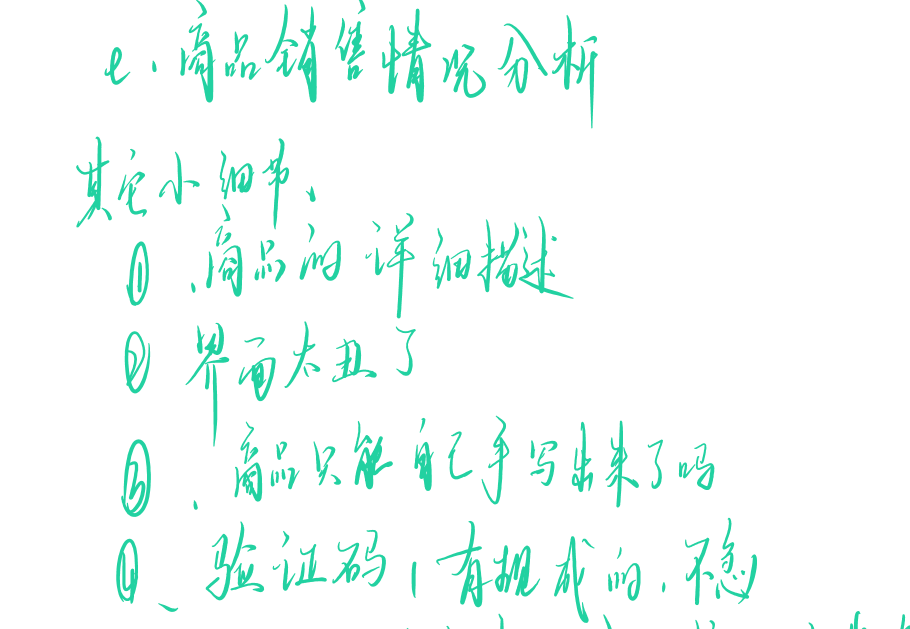 七、商品销售情况分析
其它小细节、
① 、商品的详细描述
② 界面太丑了
③ 、商品只能自己手写出来了吗
④、验证码，有现成的，不急